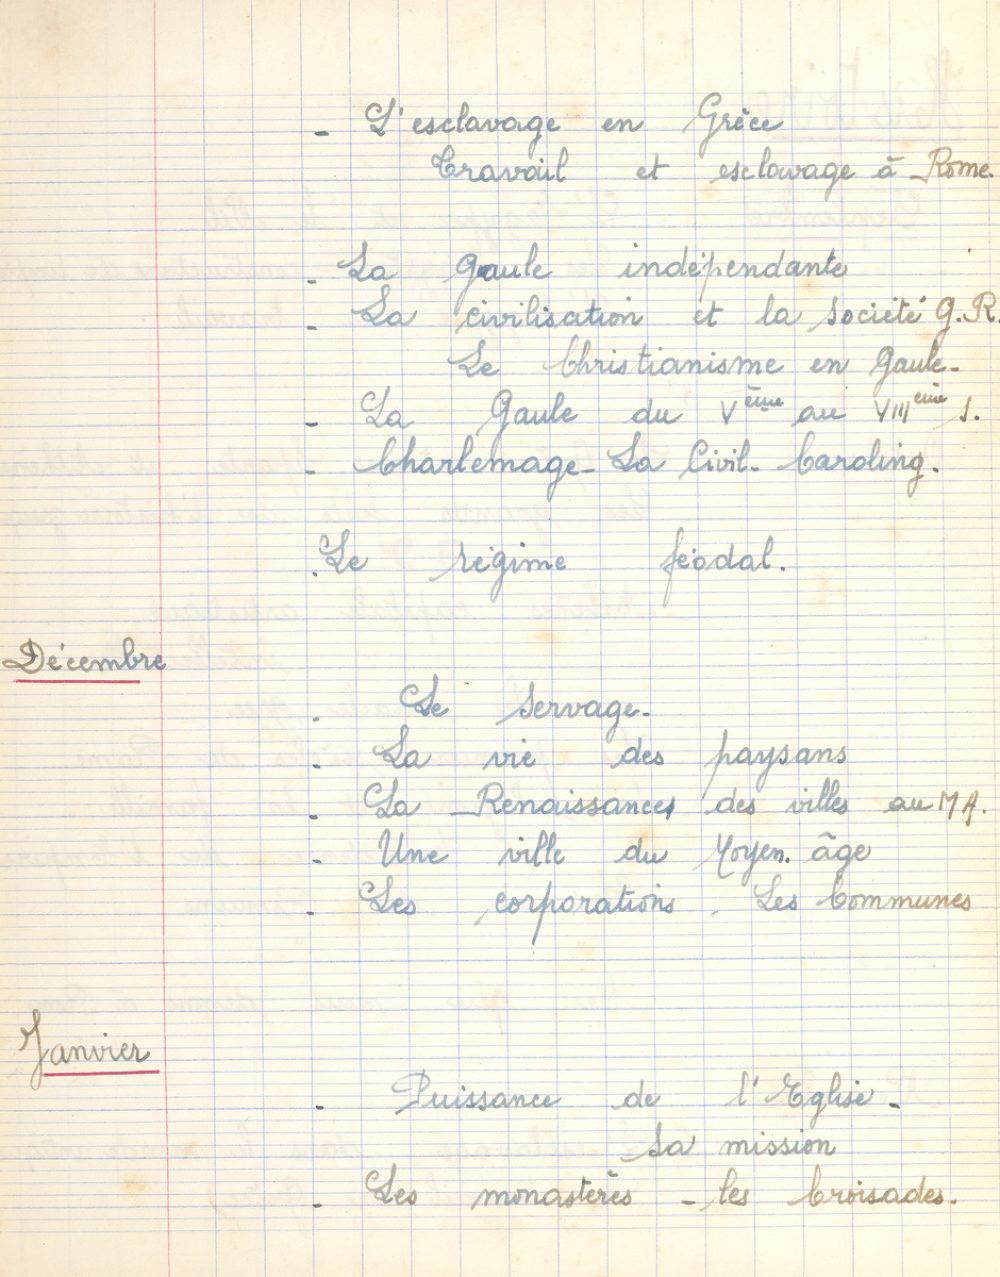 - L'esclavage en Grèce
Travail et esclavage à Rome.
- La Gaule indépendante
- La civilisation et la société G.R.
Le Christianisme en Gaule -
- La Gaule du Vème au VIIIème s.
- Charlemage - La Civil. Caroling.
. Le régime féodal.
Décembre
. Le servage -
- La vie des paysans
- La Renaissances des villes au M A.
- Une ville du Moyen. âge
- Les corporations . Les Communes
Janvier
- Puissance de l'Eglise -
sa mission
- Les monastères - les Croisades.